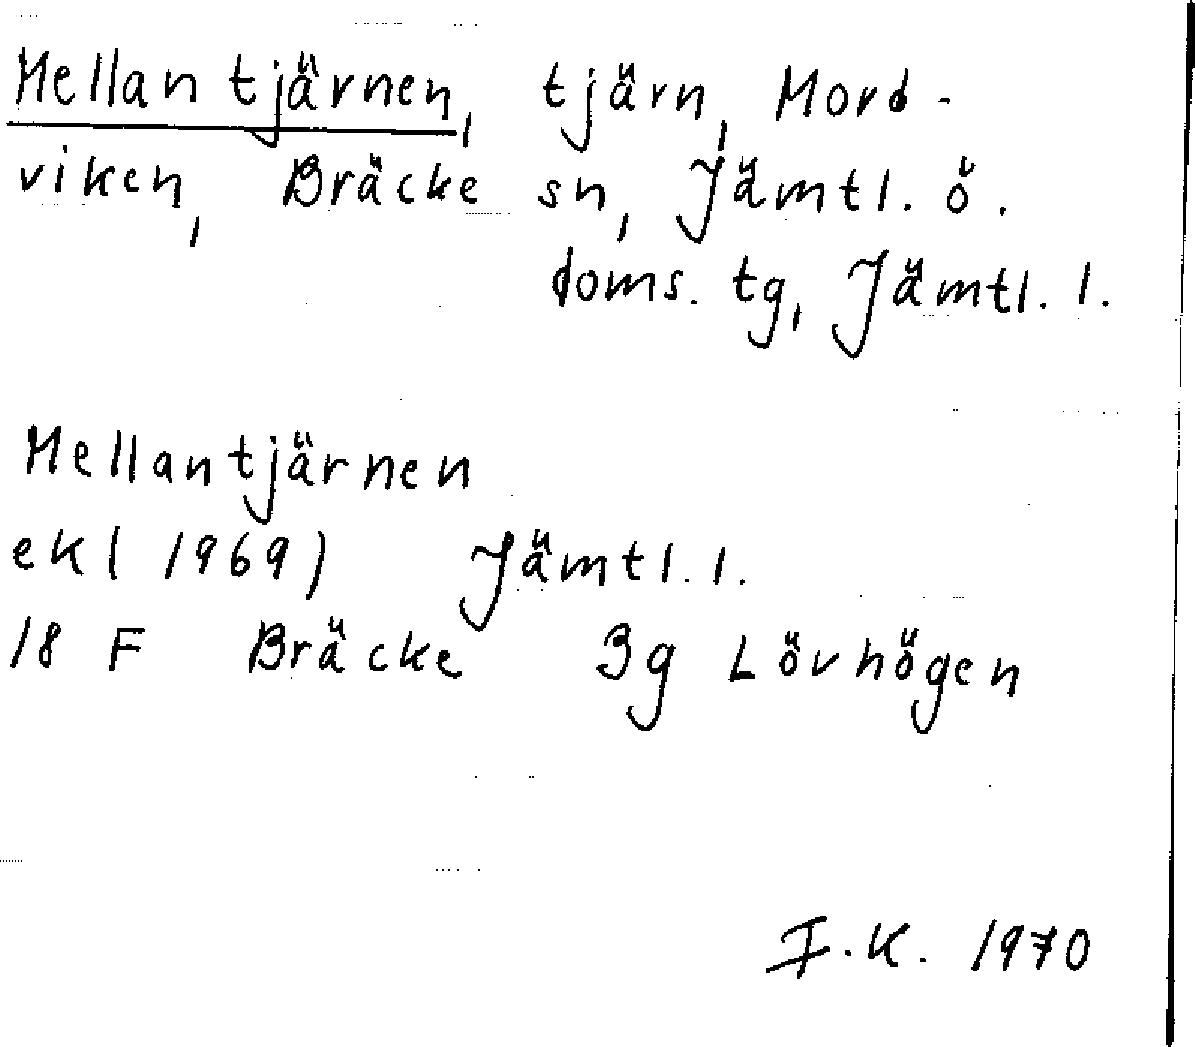 Mellantjärnen, tjärn, Mord-
viken, Bräcke sn, Jämtl. ö.
doms. tg, Jämtl. l.
Mellantjärnen
ekl 1969) Jämtl. l.
18 F Bräcke 3g Lövhögen
I.K. 1970